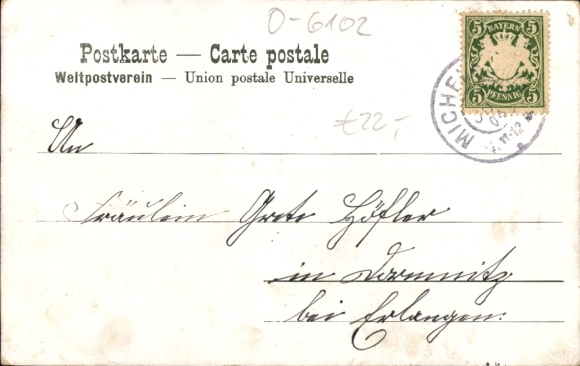 O-6102
Postkarte — Carte postale
Weltpostverein — Union postale Universelle
5 BAYERN 5
5 PFENNIG 5
MICHE
11-12
€22,-
An
Fräulein Grete Höfler
in Dormnitz
bei Erlangen.